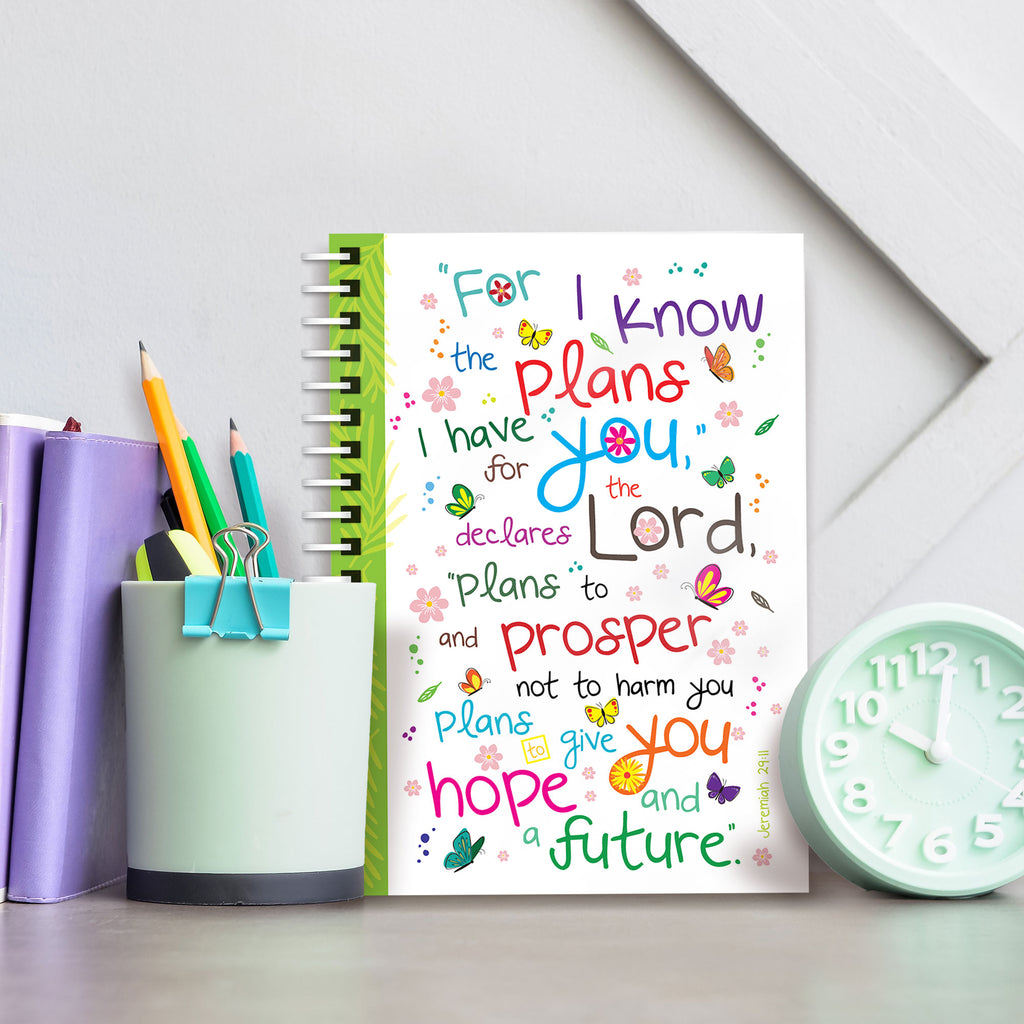 "For I know
the plans
I have for you,"
declares the Lord,
"plans to
and prosper
not to harm you
plans to give you
hope and
a future".
Jeremiah 29:11
11 12 1
10 2
9
8
7 6 5